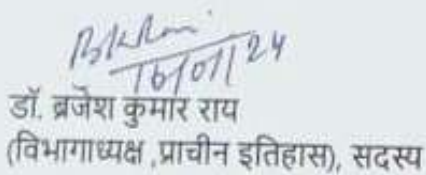 16/01/24
डॉ. ब्रजेश कुमार राय
(विभागाध्यक्ष ,प्राचीन इतिहास), सदस्य